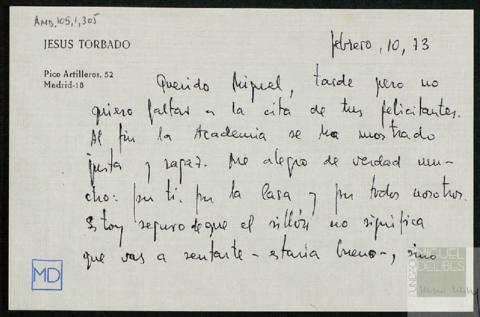 AMD,105,1,305
JESUS TORBADO
Pico Artilleros, 52
Madrid-18
febrero, 10, 73
Querido Miguel, tarde pero no
quiero faltar a la cita de tus felicitantes.
Al fin la Academia se ha mostrado
justa y sagaz. Me alegro de verdad mu-
cho: por ti, por la casa y por todos nosotros.
Estoy seguro de que el sillón no significa
que vas a sentarte - estaría bueno -, sino
MD
FUNDACIÓN
MIGUEL
DELIBES